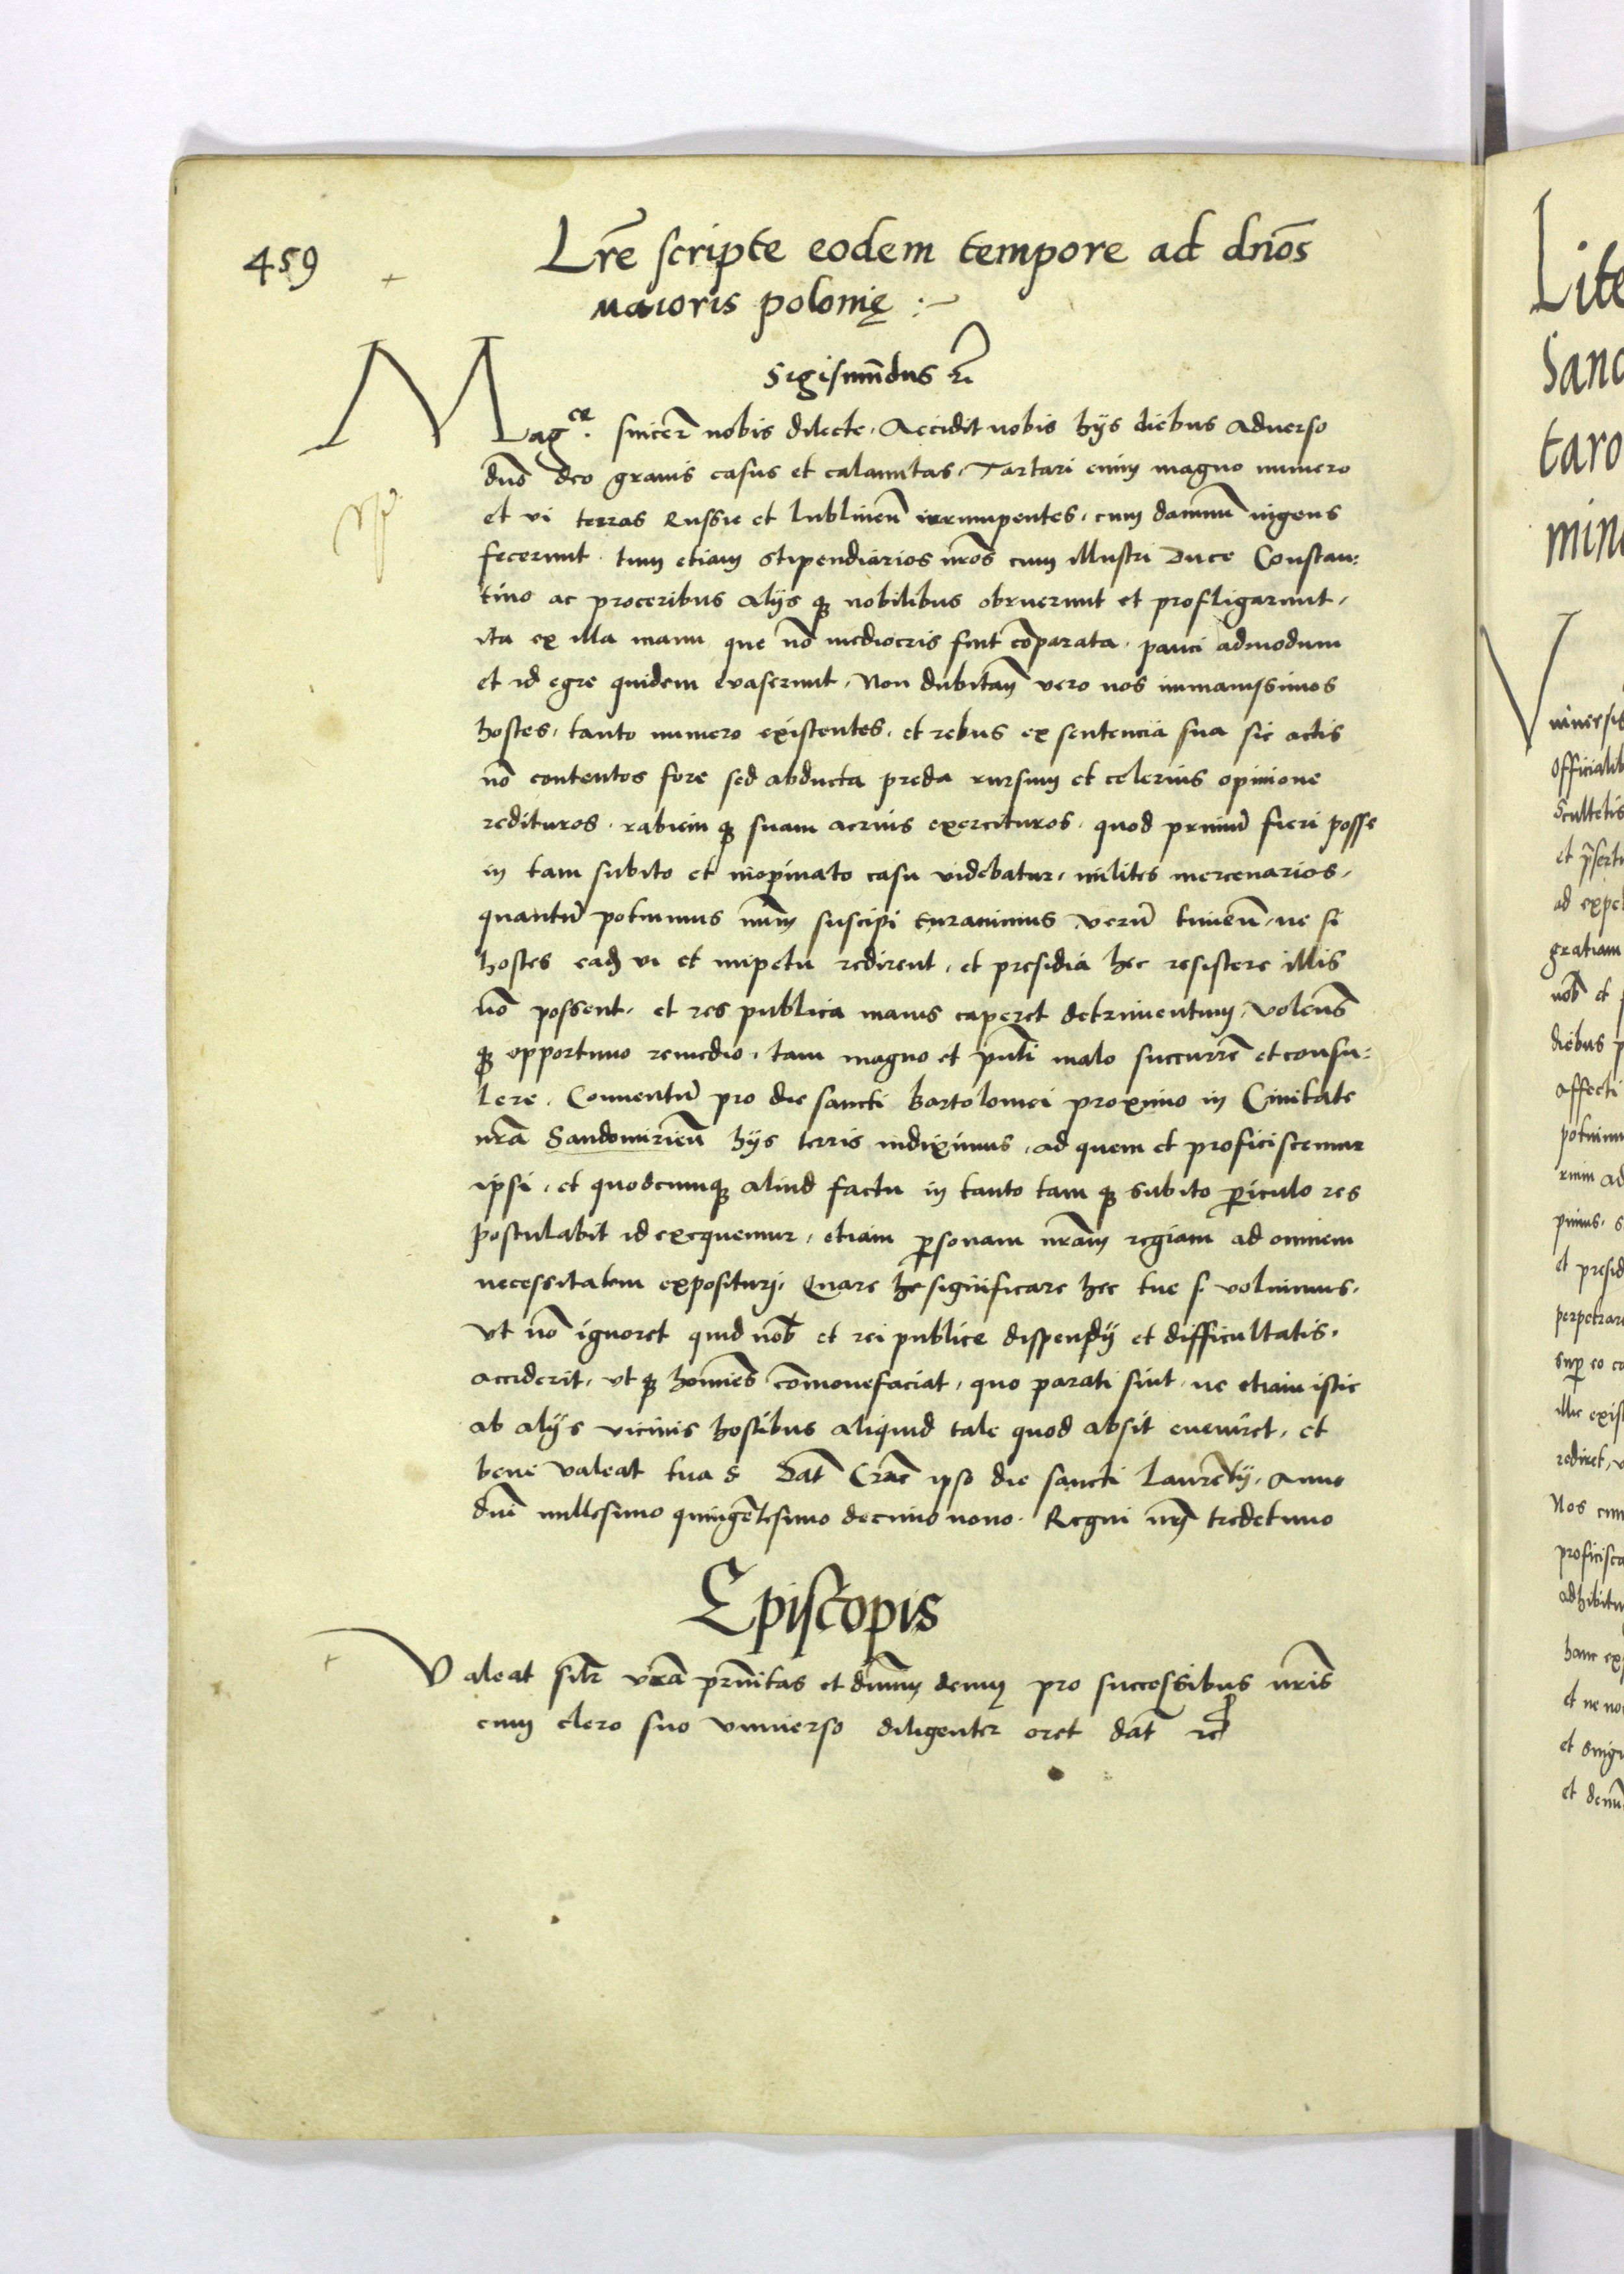 459
Lrē scripte eodem tempore ad dnōs
maioris polonię :~
Sigismūdus rē
Magce. sincerē nobis dilecte. Accidit nobis hijs diebus adverso
dnō deo gravis casus et calamitas. Tartari enim magno numero
et vi terras Russie et lublineñ irrumpentes, cum damnū ingens
fecerunt. tum etiam stipendiarios nrōs cum illustri Duce Constan:
tino ac proceribus alijs qȝ nobilibus obruerunt et profligarunt,
ita ex illa manu que nō mediocris fuit cōparata. pauci admodum
et id egre quidem evaserunt. Non dubitam̄ vero nos immanissimos
hostes, tanto numero existentes, et rebus ex sentencia sua sic actis
nō contentos fore sed abducta preda rursum et celerius opinione
redituros. rabiem qȝ suam acrius exercituros. quod primū fieri posse
in tam subito et inopinato casu videbatur, milites mercenarios,
quantū potuimus suscipi curavimus verū timeñ, ne si
hostes eadȝ vi et impetu redirent, et presidia hec resistere illis
nō possent, et res publica maius caperet detrimentum, volens̄
qȝ opportuno remedio, tam magno et pn̄ti malo succurrē et consu:
lere. Conventū pro die sancti Bartolomei proximo in Civitate
nrā Sandomirieñ hijs terris indiximus, ad quem et proficiscemur
ipsi, et quodcumqȝ aliud factu in tanto tam qȝ subito p̄iculo res
postulabit id exequemur, etiam p̄sonam nrām regiam ad omnem
necessitatem exposituri. Quare significare hec tue s. voluimus.
Ut nō ignoret quid nob̄ et rei publice dispendij et difficultatis.
acciderit, ut qȝ homīes cōmonefaciat, quo parati sint ne etiam istic
ab alijs vicinis hostibus aliquid tale quod absit eveniret, et
bene valeat tua s Dat̄ Crac̄ ipso die sancti Laurētij, Anno
dnī millesimo quingētesimo decimo nono. Regni nrī tredecimo
Episcopis
Valeat sil̄r vrā pr̄nitas et deum pro successibus nrīs
cum clero suo universo diligenter oret dat̄ rē